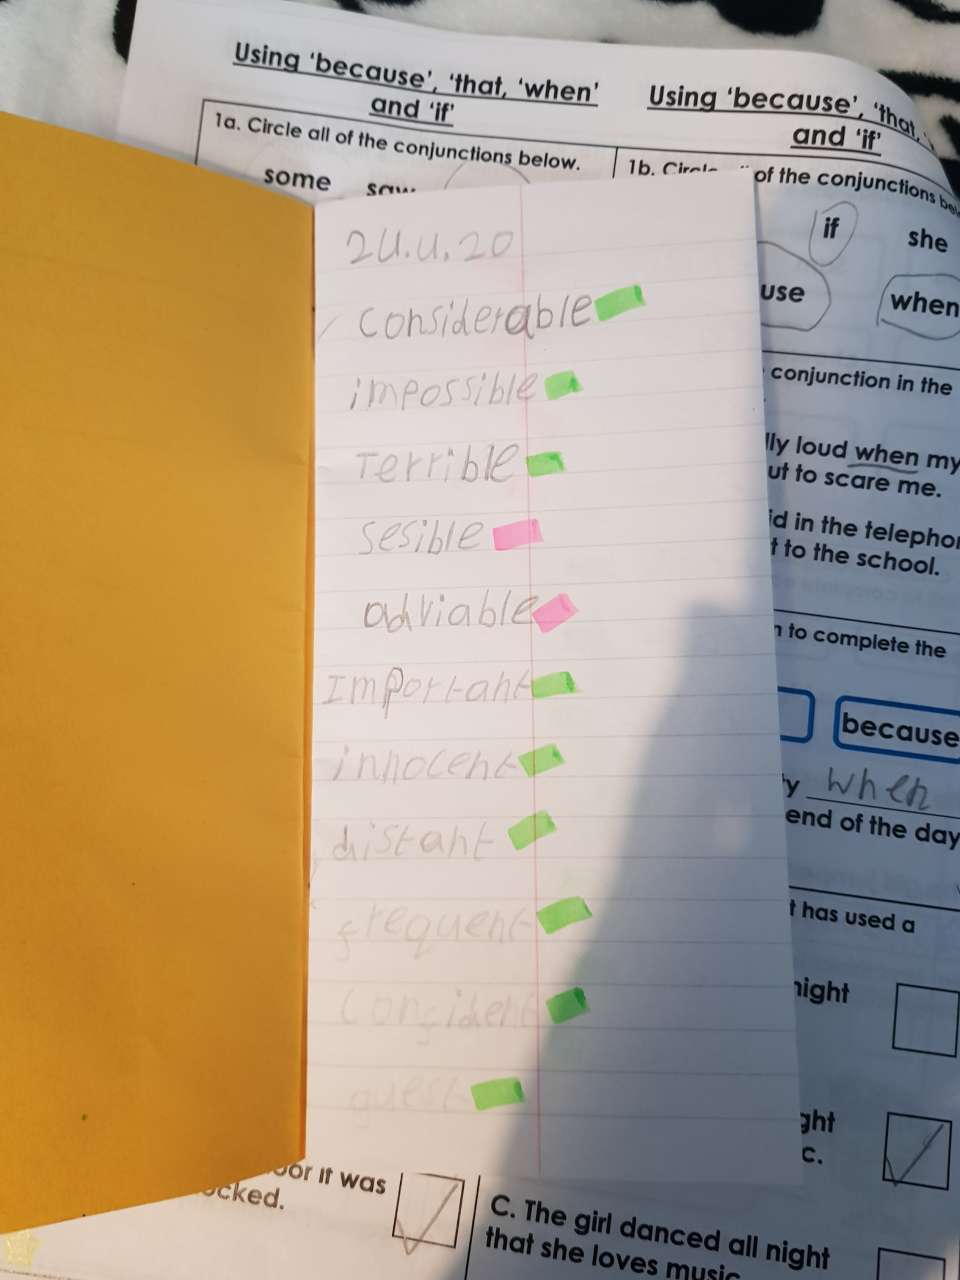 Using 'because', 'that, 'when'
and 'if'
Using 'because', 'that,
and 'if'
1a. Circle all of the conjunctions below.
some saw
1b. of the conjunctions
if she
use
when
conjunction in the
lly loud when my
ut to scare me.
id in the
t to the school.
to complete the
because
y when
end of the day
t has used a
night
ght
c.
24.4.20
considerable
impossible
Terrible
sesible
adviable
Important
innocent
distant
frequent
confident
guest
oor it was
ocked.
C. The girl danced all night
that she loves music